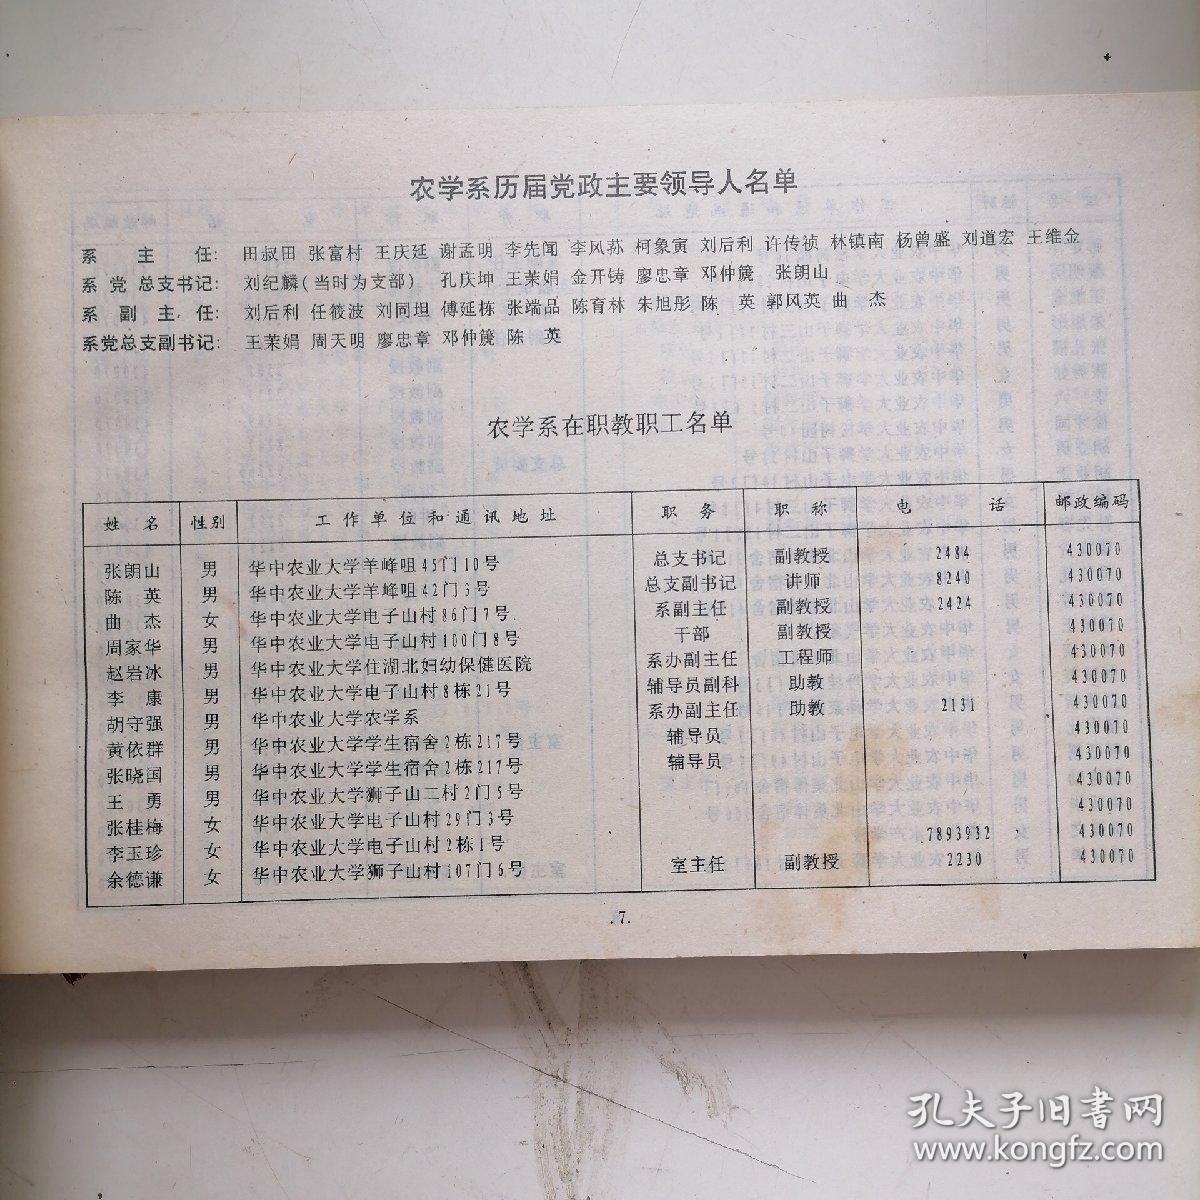 农学系历届党政主要领导人名单
系 主 任: 田叔田 张富村 王庆延 谢孟明 李先闻 李风荪 柯象寅 刘后利 许传祯 林镇南 杨曾盛 刘道宏 王维金
系党总支书记: 刘纪麟(当时为支部) 孔庆坤 王茉娟 金开铸 廖忠章 邓仲篪 张朗山
系副主任: 刘后利 任筱波 刘同坦 傅延栋 张端品 陈育林 朱旭彤 陈 英 郭风英 曲 杰
系党总支副书记: 王茉娟 周天明 廖忠章 邓仲篪 陈 英
农学系在职教职工名单
姓 名 性别 工作单位和通讯地址 职 务 职 称 电 话 邮政编码
张朗山 男 华中农业大学羊峰咀45门10号 总支书记 副教授 2484 430070
陈 英 男 华中农业大学羊峰咀42门3号 总支副书记 讲师 8240 430070
曲 杰 女 华中农业大学电子山村86门7号 系副主任 副教授 2424 430070
周家华 男 华中农业大学电子山村100门8号 干部 副教授 430070
赵岩冰 男 华中农业大学住湖北妇幼保健医院 系办副主任 工程师 430070
李 康 男 华中农业大学电子山村8栋21号 辅导员副科 助教 430070
胡守强 男 华中农业大学农学系 系办副主任 助教 2131 430070
黄依群 男 华中农业大学学生宿舍2栋217号 辅导员 430070
张晓国 男 华中农业大学学生宿舍2栋217号 辅导员 430070
王 勇 男 华中农业大学狮子山二村2门5号 430070
张桂梅 女 华中农业大学电子山村29门3号 430070
李玉珍 女 华中农业大学电子山村2栋1号 7893932 430070
余德谦 女 华中农业大学狮子山村107门6号 室主任 副教授 2230 430070
.7.
孔夫子旧书网
www.kongfz.com